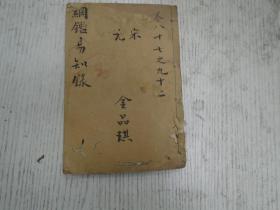 卷八十七之九十二
宋
元
金品騏
綱鑑易知錄